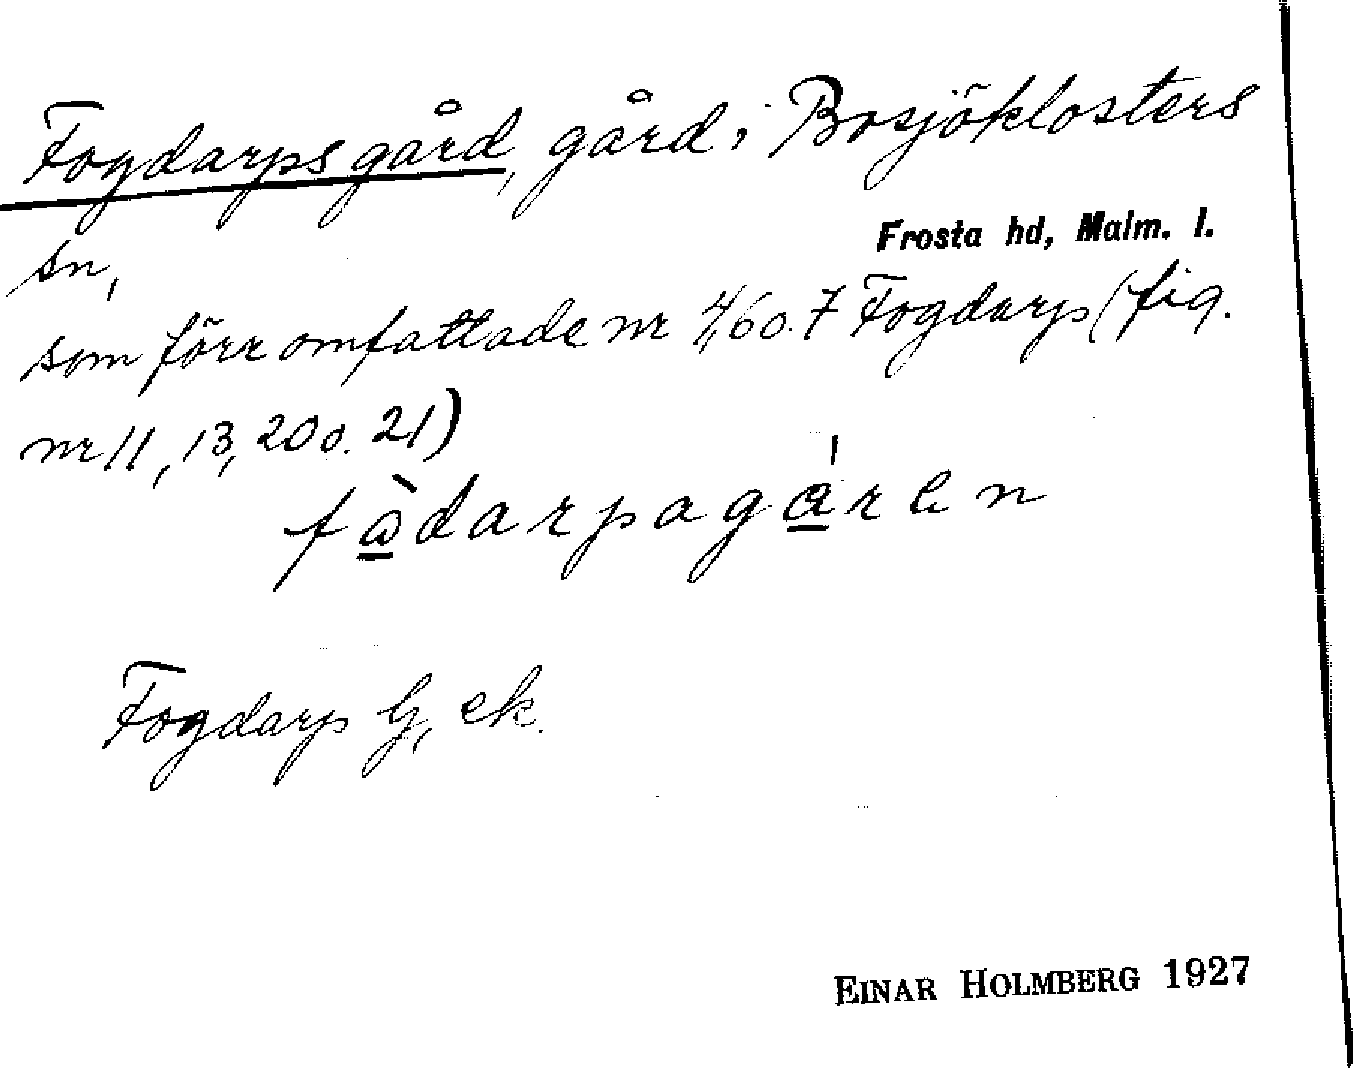 Fogdarpsgård, gård i Bosjöklosters
Frosta hd, Malm. l.
sn,
som förr omfattade nr 4, 6 o. 7 Fogdarp (fig.
nr 11, 13, 20 o. 21)
fàdarpagáren
Fogdarp G, ek.
EINAR HOLMBERG 1927